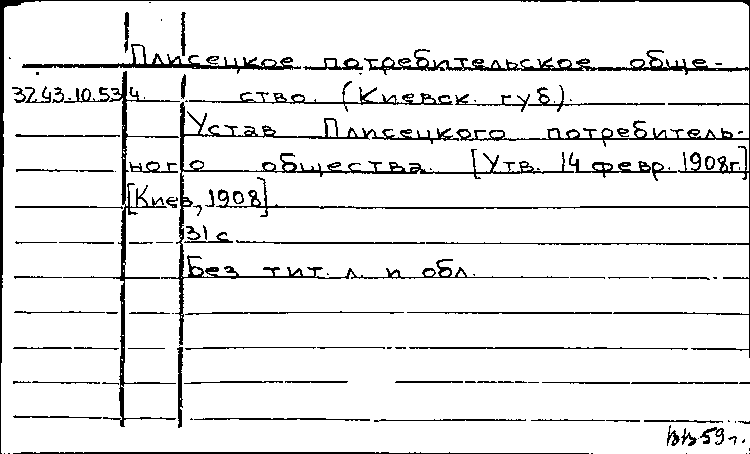 Плисецкое потребительское обще-
37.43.10.53 4. ство. (Киевск. губ).
Устав Плисецкого потребитель-
ного общества. [Утв. 14 февр. 1908г.]
[Киев, 1908].
31 с
Без тит. л. и обл.
59 г.